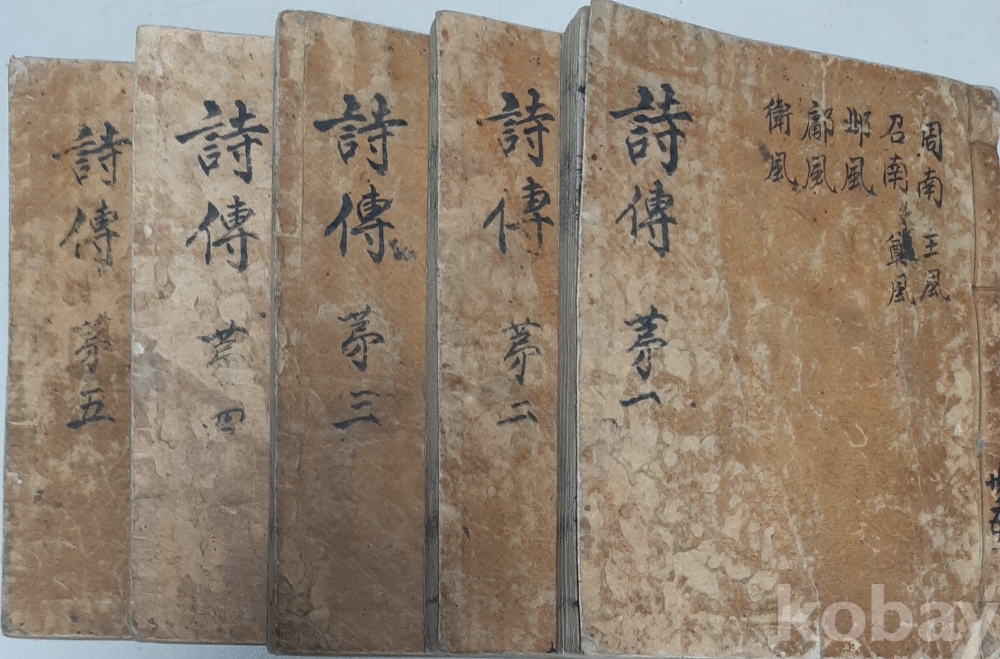 周南 王風
召南 鄭風
邶風
鄘風
衛風
詩傳 苐一
詩傳 苐二
詩傳 苐三
詩傳 苐四
詩傳 苐五
kobay